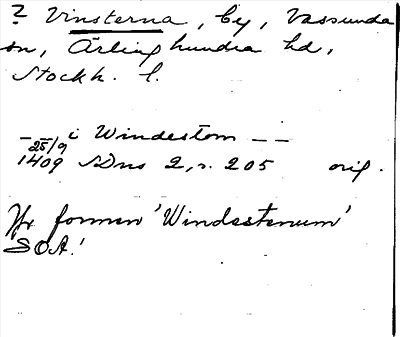 ? Vinsterna, by, Vassunda
sn, Ärlinghundra hd,
Stockh. l.
– i Windestom – –
25/9
1409 SDns 2, s. 205 orig.
Jfr formen 'Windestenum'
SOA!